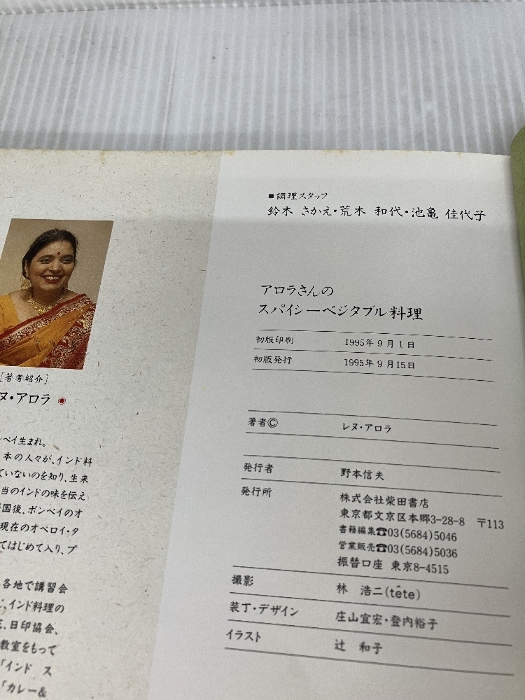 [著者紹介]
ヌ・アロラ
ベイ生まれ。
本の人々が、インド料
ていないのを知り、生来
当のインドの味を伝え
国後、ボンベイのオ
現在のオベロイ・タ
てはじめて入り、プ
各地で講習会
インド料理の
日印協会、
教室をもって
「インド ス
「カレー&
■調理スタッフ
鈴木 さかえ・荒木 和代・池亀 佳代子
アロラさんの
スパイシーベジタブル料理
初版印刷 1995年9月1日
初版発行 1995年9月15日
著者© レヌ・アロラ
発行者 野本信夫
発行所 株式会社柴田書店
東京都文京区本郷3-28-8 〒113
書籍編集☎03(5684)5046
営業販売☎03(5684)5036
振替口座 東京8-4515
撮影 林 浩二(tête)
装丁・デザイン 庄山宜宏・登内裕子
イラスト 辻 和子